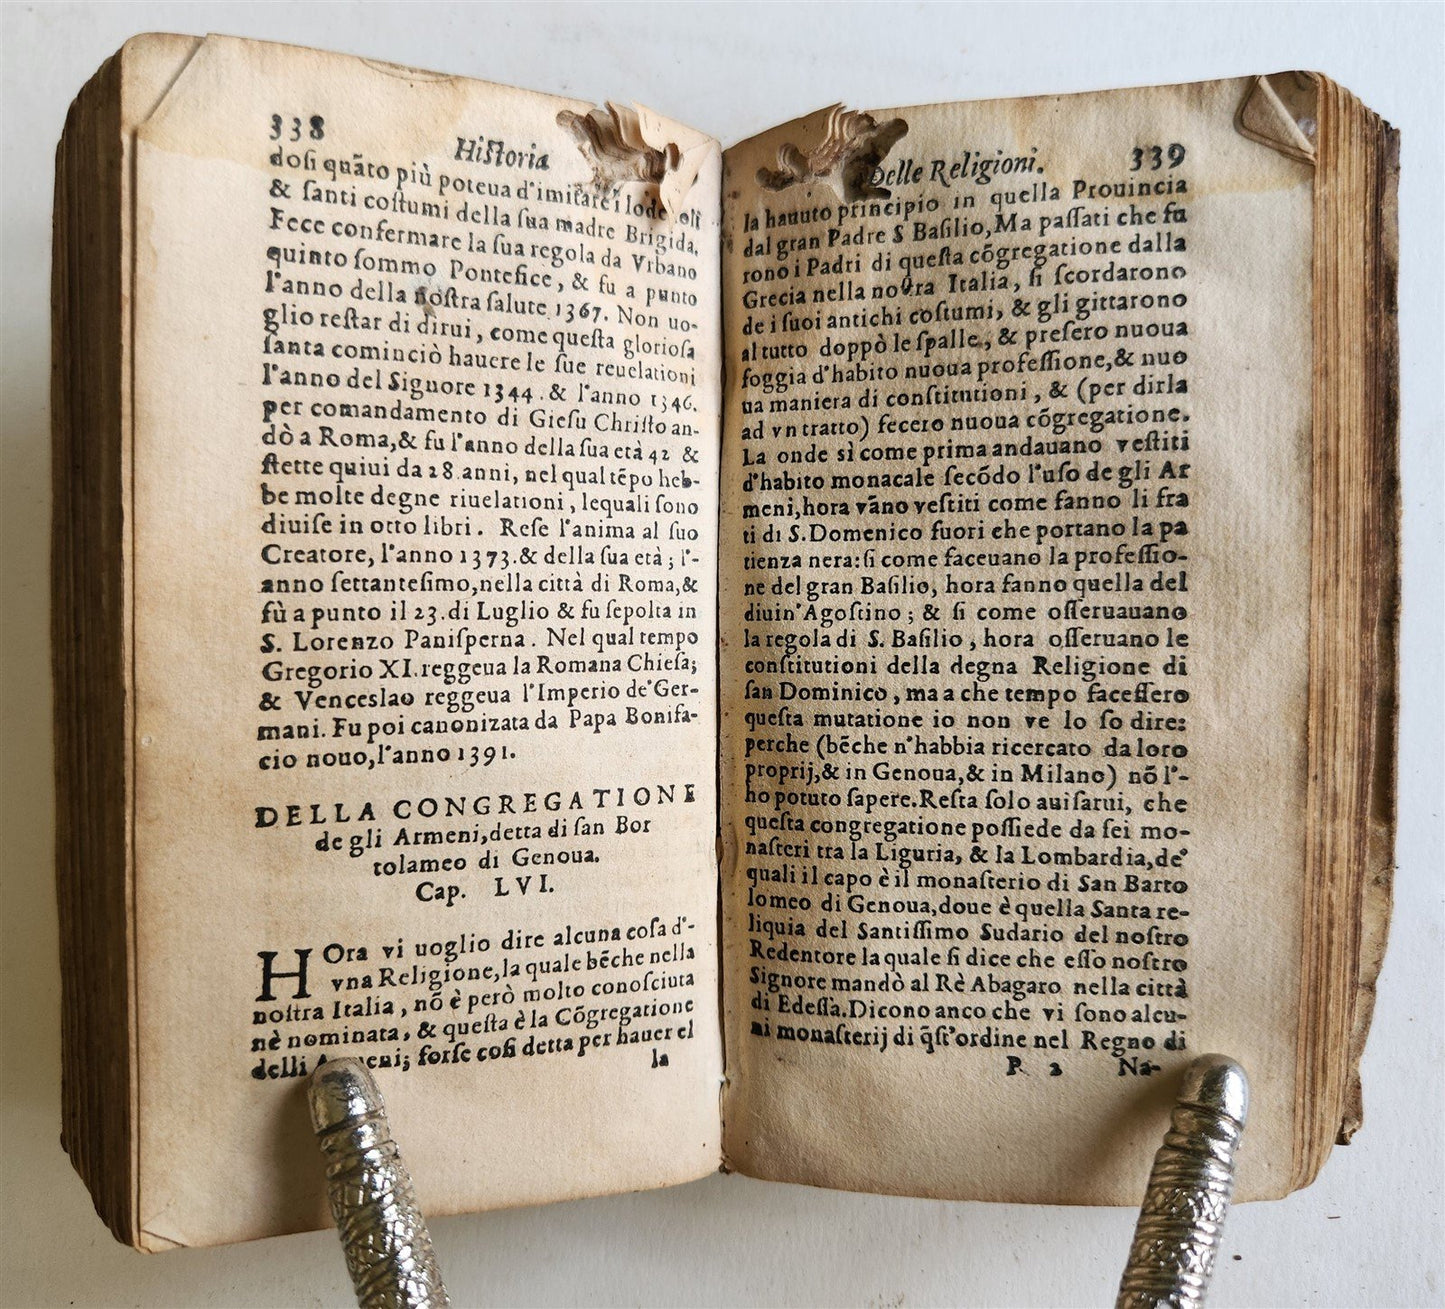 338
Hiſtoria
doſi quãto più poteua d'imitare i lode oli
& ſanti coſtumi della ſua madre Brigida.
Fece confermare la ſua regola da Vrbano
quinto ſommo Pontefice, & fu a punto
l'anno della noſtra ſalute 1367. Non uo-
glio reſtar di dirui, come queſta glorioſa
ſanta cominciò hauere le ſue reuelationi
l'anno del Signore 1344. & l'anno 1346.
per comandamento di Gieſu Chriſto an-
dò a Roma,& fu l'anno della ſua età 42 &
ſtette quiui da 28 anni, nel qual tẽpo heb-
be molte degne riuelationi, lequali ſono
diuiſe in otto libri. Reſe l'anima al ſuo
Creatore, l'anno 1373.& della ſua età; l'-
anno ſettanteſimo,nella città di Roma,&
fù a punto il 23.di Luglio & fu ſepolta in
S. Lorenzo Paniſperna. Nel qual tempo
Gregorio XI.reggeua la Romana Chieſa;
& Venceslao reggeua l'Imperio de'Ger-
mani. Fu poi canonizata da Papa Bonifa-
cio nouo,l'anno 1391.
DELLA CONGREGATIONE
de gli Armeni,detta di ſan Bor
tolameo di Genoua.
Cap. LVI.
HOra vi uoglio dire alcuna coſa d'-
vna Religione,la quale bẽche nella
noſtra Italia, nõ è però molto conoſciuta
nè nominata, & queſta è la Cõgregatione
delli Armeni; forſe coſi detta per hauer el
la
Delle Religioni.
339
la hauuto principio in quella Prouincia
dal gran Padre S Baſilio,Ma paſſati che fu
rono i Padri di queſta cõgregatione dalla
Grecia nella noſtra Italia, ſi ſcordarono
de i ſuoi antichi coſtumi, & gli gittarono
al tutto doppò le ſpalle, & preſero nuoua
foggia d'habito nuoua profeſſione,& nuo
ua maniera di conſtitutioni, & (per dirla
ad vn tratto) fecero nuoua cõgregatione.
La onde sì come prima andauano veſtiti
d'habito monacale ſecõdo l'uſo de gli Ar
meni,hora vãno veſtiti come fanno li fra
ti di S.Domenico fuori che portano la pa
tienza nera:ſi come faceuano la profeſſio-
ne del gran Baſilio, hora fanno quella del
diuin'Agoſtino; & ſi come oſſeruauano
la regola di S. Baſilio, hora oſſeruano le
conſtitutioni della degna Religione di
ſan Dominico, ma a che tempo faceſſero
queſta mutatione io non ve lo ſo dire:
perche (bẽche n'habbia ricercato da loro
proprij,& in Genoua,& in Milano) nõ l'-
ho potuto ſapere.Reſta ſolo auiſarui, che
queſta congregatione poſſiede da ſei mo-
naſteri tra la Liguria, & la Lombardia,de'
quali il capo è il monaſterio di San Barto
lomeo di Genoua,doue è quella Santa re-
liquia del Santiſſimo Sudario del noſtro
Redentore la quale ſi dice che eſſo noſtro
Signore mandò al Rè Abagaro nella città
di Edeſſa.Dicono anco che vi ſono alcu-
ni monaſterij di q̃ſt'ordine nel Regno di
P 2 Na-